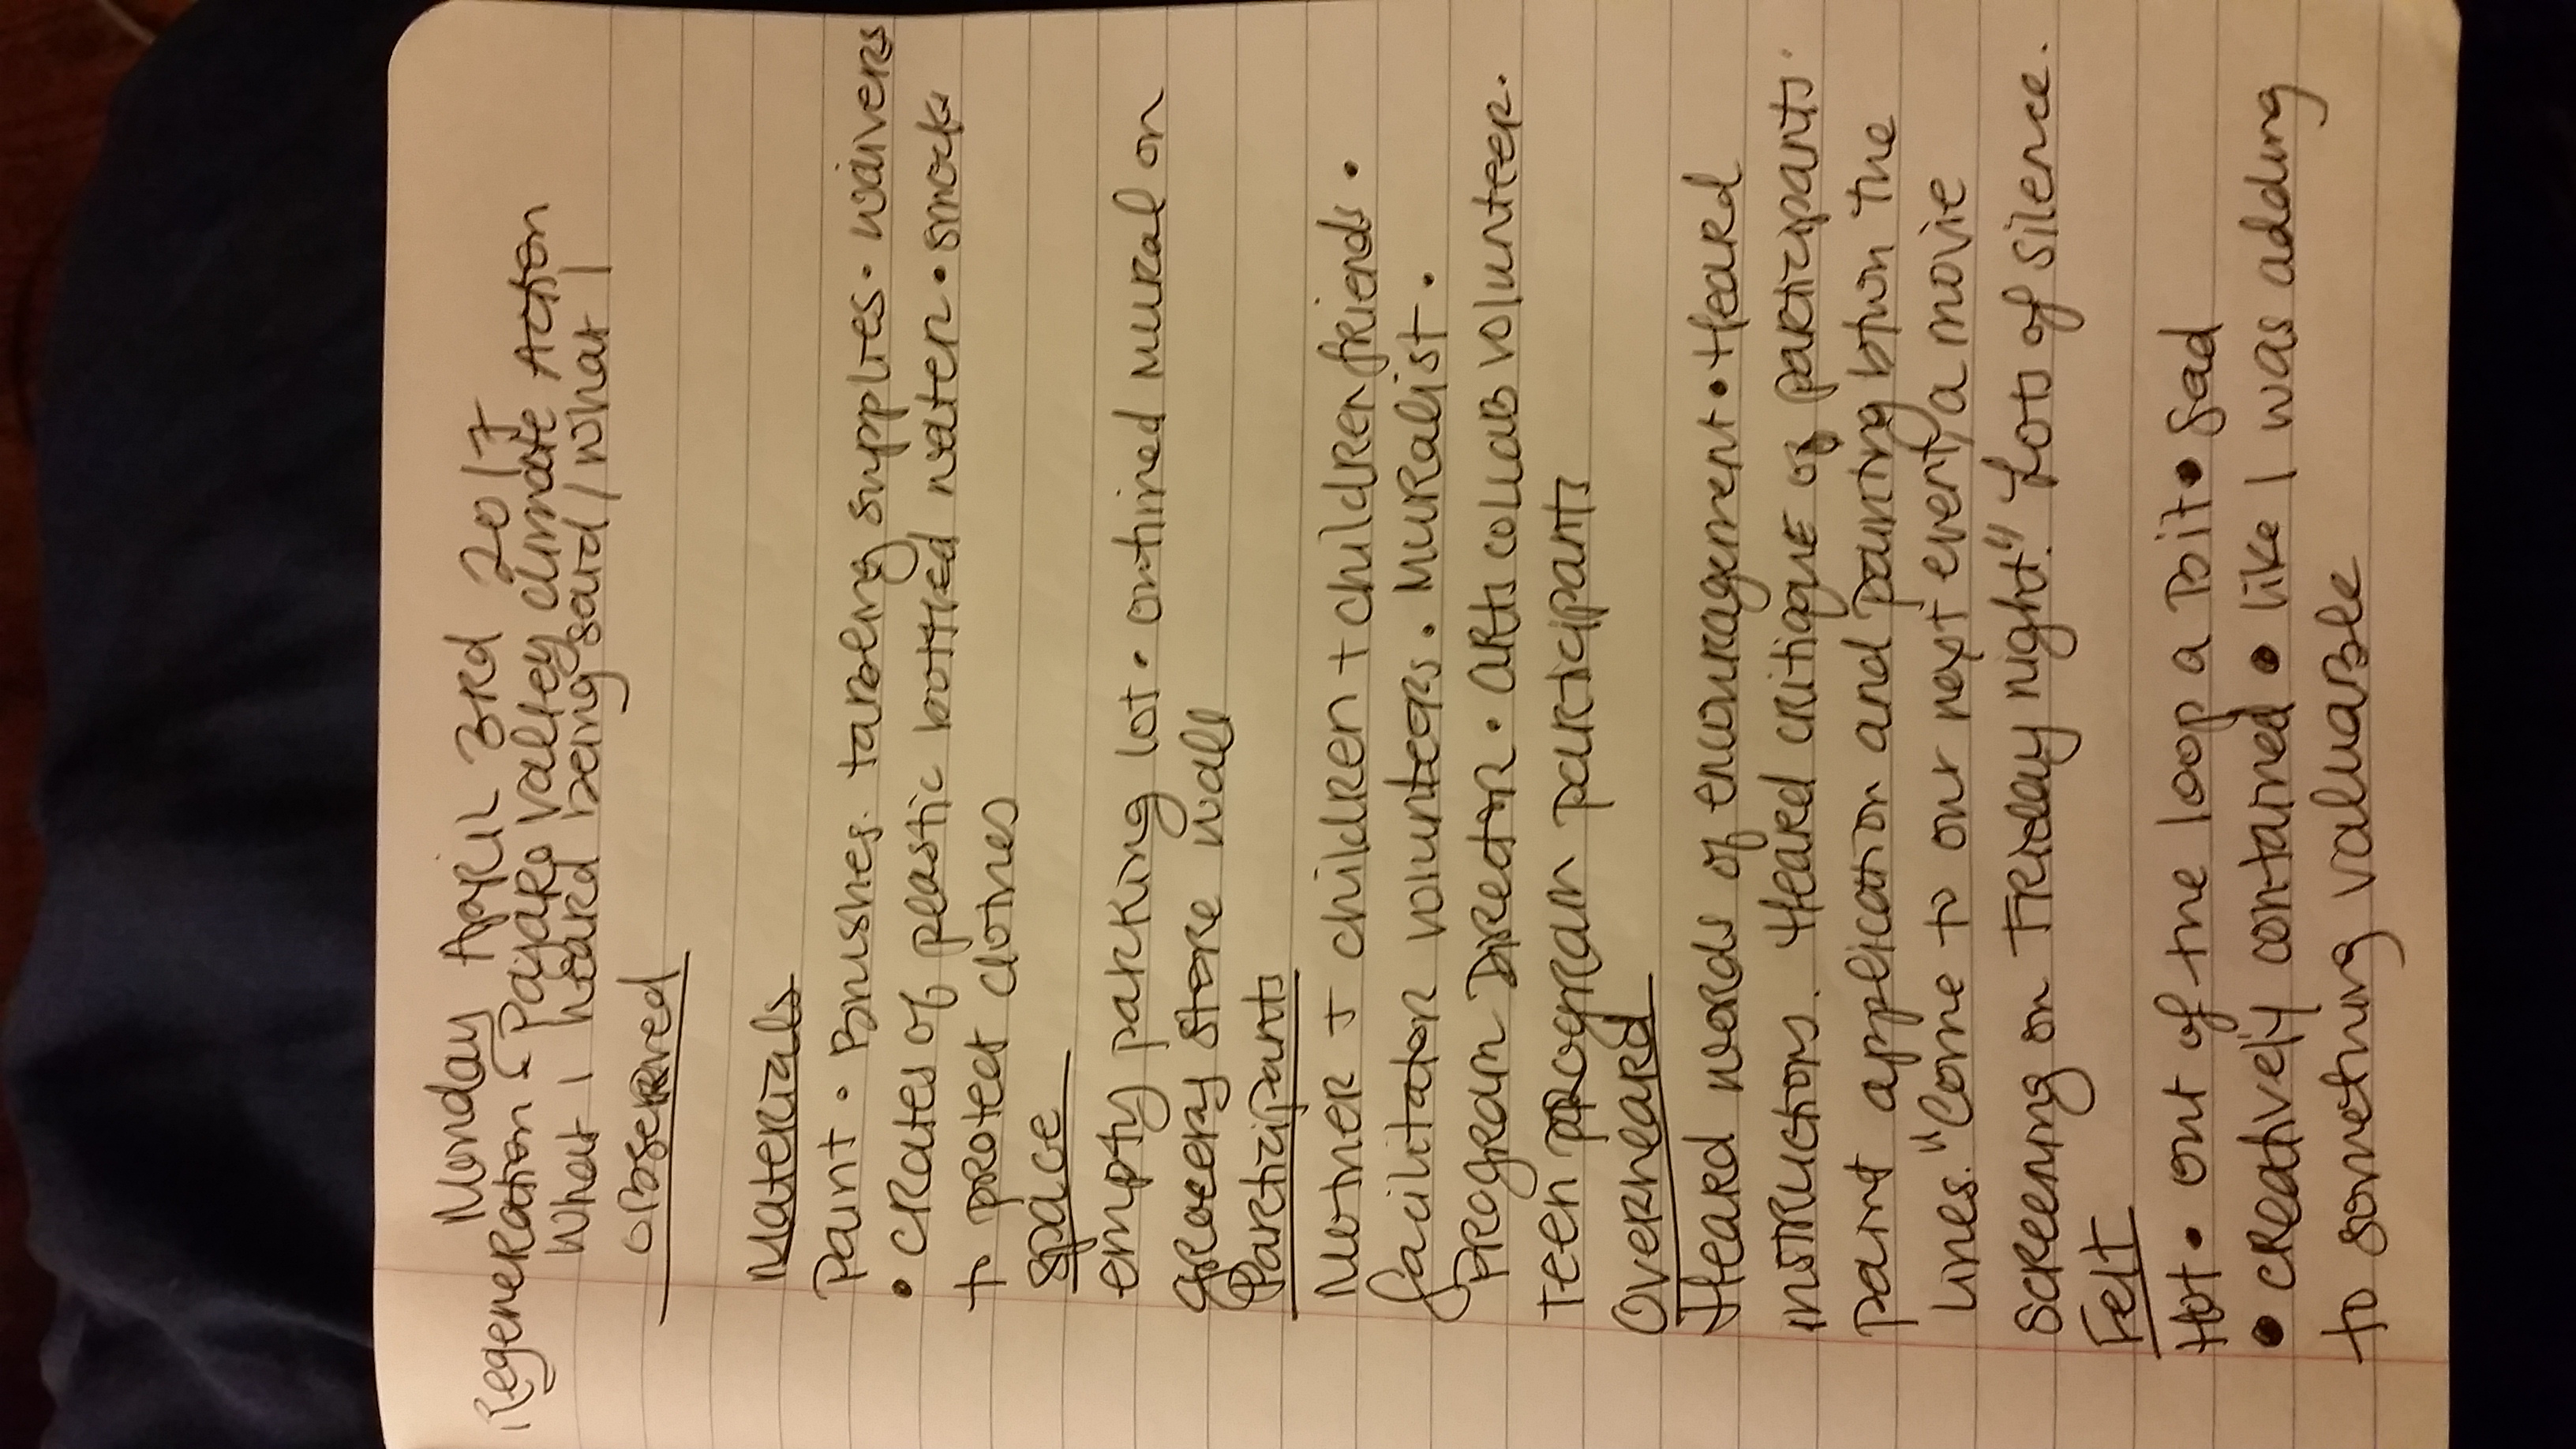 Monday April 3rd 2017
Regeneration & Pajaro Valley Climate Action
What I heard being said / what I
observed
Materials
Paint • Brushes • tabeling supplies • waivers
• crates of plastic bottled water • smocks
to protect clothes
Space
empty parking lot • outlined mural on
grocery store wall
Participants
Mother + children + children friends •
facilitator volunteers • Muralist •
Program Director • arts collab volunteer.
Teen program participants
Overheard
Heard words of encouragement • Heard
instructions. Heard critique of participants.
paint application and painting btwn the
lines. "Come to our next event, a movie
screening on Friday night." Lots of silence.
Felt
Hot • out of the loop a bit • Sad
• creatively contained • like I was adding
to something valuable